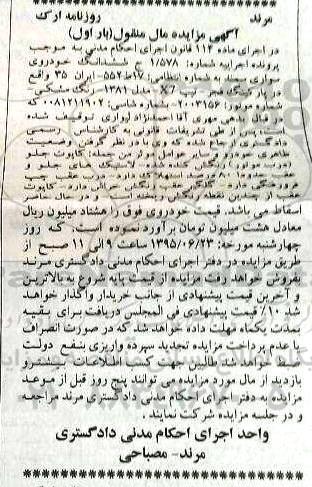 مرند روزنامه ارک
آگهی مزایده مال منقول(بار اول)
در اجرای ماده ۱۱۴ قانون اجرای احکام مدنی به موجب
پرونده اجرایی شماره: ۱/۵۷۸ ج ششدانگ خودروی
سواری سمند به شماره انتظامی: ۵۵۲ط۱۷-ایران ۳۵ واقع
در پارکینگ فجر تیپ X7- مدل ۱۳۸۱- رنگ مشکی-
شماره موتور: ۲۰۰۳۱۵۶- شماره شاسی: ۰۰۸۱۲۱۱۹۰۲ که
در قبال بدهی مهری آقا احمدنژاد لیواری توقیف شده
است پس از طی تشریفات قانونی به کارشناس رسمی
دادگستری ارجاع شده که وی با در نظر گرفتن وضعیت
ظاهری خودرو و سایر عوامل موثر من جمله: کاپوت جلو و
درب موتور رنگ شده- لاستیک های جلو و
عقب حدودا ۸۰ درصد استهلاک دارد- درب عقب
فرورفتگی دارد- گلگیر عقب رنگش خراش دارد- کاپوت
عقب از چندین نقطه رنگش ریخته است. و در حال حاضر
اسقاط می باشد. قیمت خودروی فوق را هشتاد میلیون ریال
معادل هشت میلیون تومان برآورد نموده است. که روز
چهارشنبه مورخه: ۱۳۹۵/۰۶/۲۳ ساعت ۹ الی ۱۱ صبح از
طریق مزایده در دفتر اجرای احکام مدنی دادگستری مرند
بفروش خواهد رفت مزایده از قیمت پایه شروع به بالاترین
و آخرین قیمت پیشنهادی از جانب خریدار واگذار خواهد
شد ۱۰٪ قیمت پیشنهادی فی المجلس دریافت برای بقیه
بمدت یکماه مهلت داده خواهد شد که در صورت انصراف
یا عدم پرداخت مزایده تجدید سپرده واریزی بنفع دولت
ضبط خواهد شد طالبین جهت کسب اطلاعات بیشتر و
بازدید از مال مورد مزایده می توانند پنج روز قبل از موعد
مزایده به دفتر اجرای احکام مدنی دادگستری مرند مراجعه
و در جلسه مزایده شرکت نمایند.
واحد اجرای احکام مدنی دادگستری
مرند- مصباحی